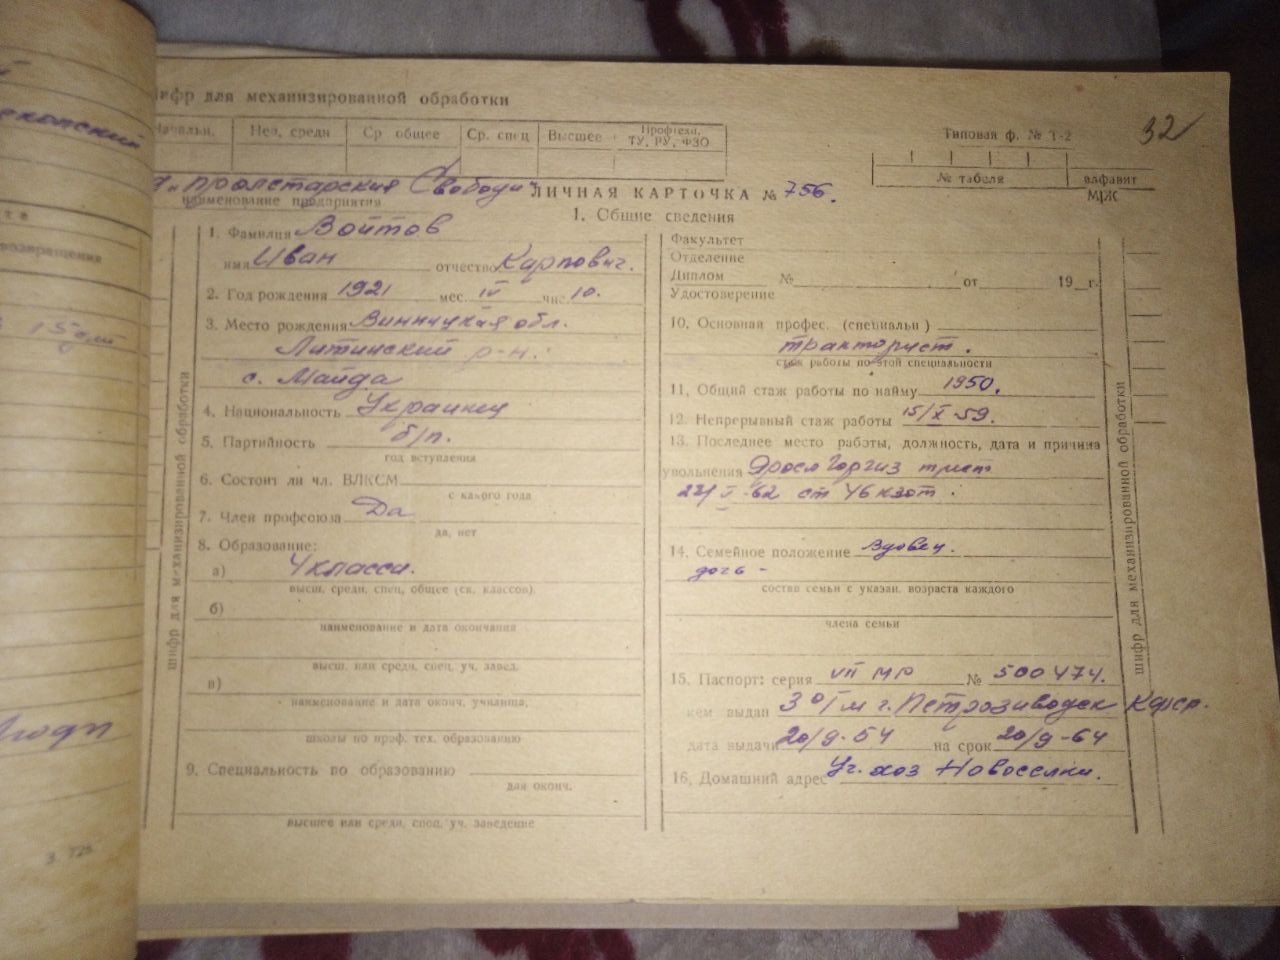 ифр для механизированной обработки
32
Начальн. Неп. средн Ср общее Ср. спец Высшее Профтехн. ТУ, РУ, ФЗО
Типовая ф. № Т-2
№ табеля алфавит
М|Ж
"Пролетарская Свобода"
наименование предприятия
ЛИЧНАЯ КАРТОЧКА № 756.
1. Общие сведения
1. Фамилия Войтов
имя Иван отчество Карпович.
2. Год рождения 1921 мес. IV чис. 10.
3. Место рождения Винницкая обл.
Литинский р-н.
с. Майда
4. Национальность Украинец
5. Партийность б/п.
год вступления
6. Состоит ли чл. ВЛКСМ
с какого года
7. Член профсоюза Да
да, нет
8. Образование:
а) 4 класса.
высш. средн, спец, общее (ск. классов).
б)
наименование и дата окончания
высш. или средн. спец. уч. завед.
в)
наименование и дата оконч, училища,
школы по проф. тех. образованию
9. Специальность по образованию
для оконч.
высшее или средн. спец. уч. заведение
шифр для механизированной обработки
Факультет
Отделение
Диплом № от 19 г.
Удостоверение
10. Основная профес. (специальн)
тракторист.
стаж работы по этой специальности
11, Общий стаж работы по найму 1950.
12. Непрерывный стаж работы 15/X-59.
13. Последнее место работы, должность, дата и причина
увольнения трест
22/V-62 ст 46 кзот.
14. Семейное положение Вдовец.
дочь -
состав семьи с указан. возраста каждого
члена семьи
15. Паспорт: серия VII МР № 500474.
кем выдан 3 о/м г. Петрозаводск Кфср.
дата выдачи 20/9-54 на срок 20/9-64
16, Домашний адрес Уч. хоз Новоселки.
шифр для механизированной обработки
возвращения
З. 725